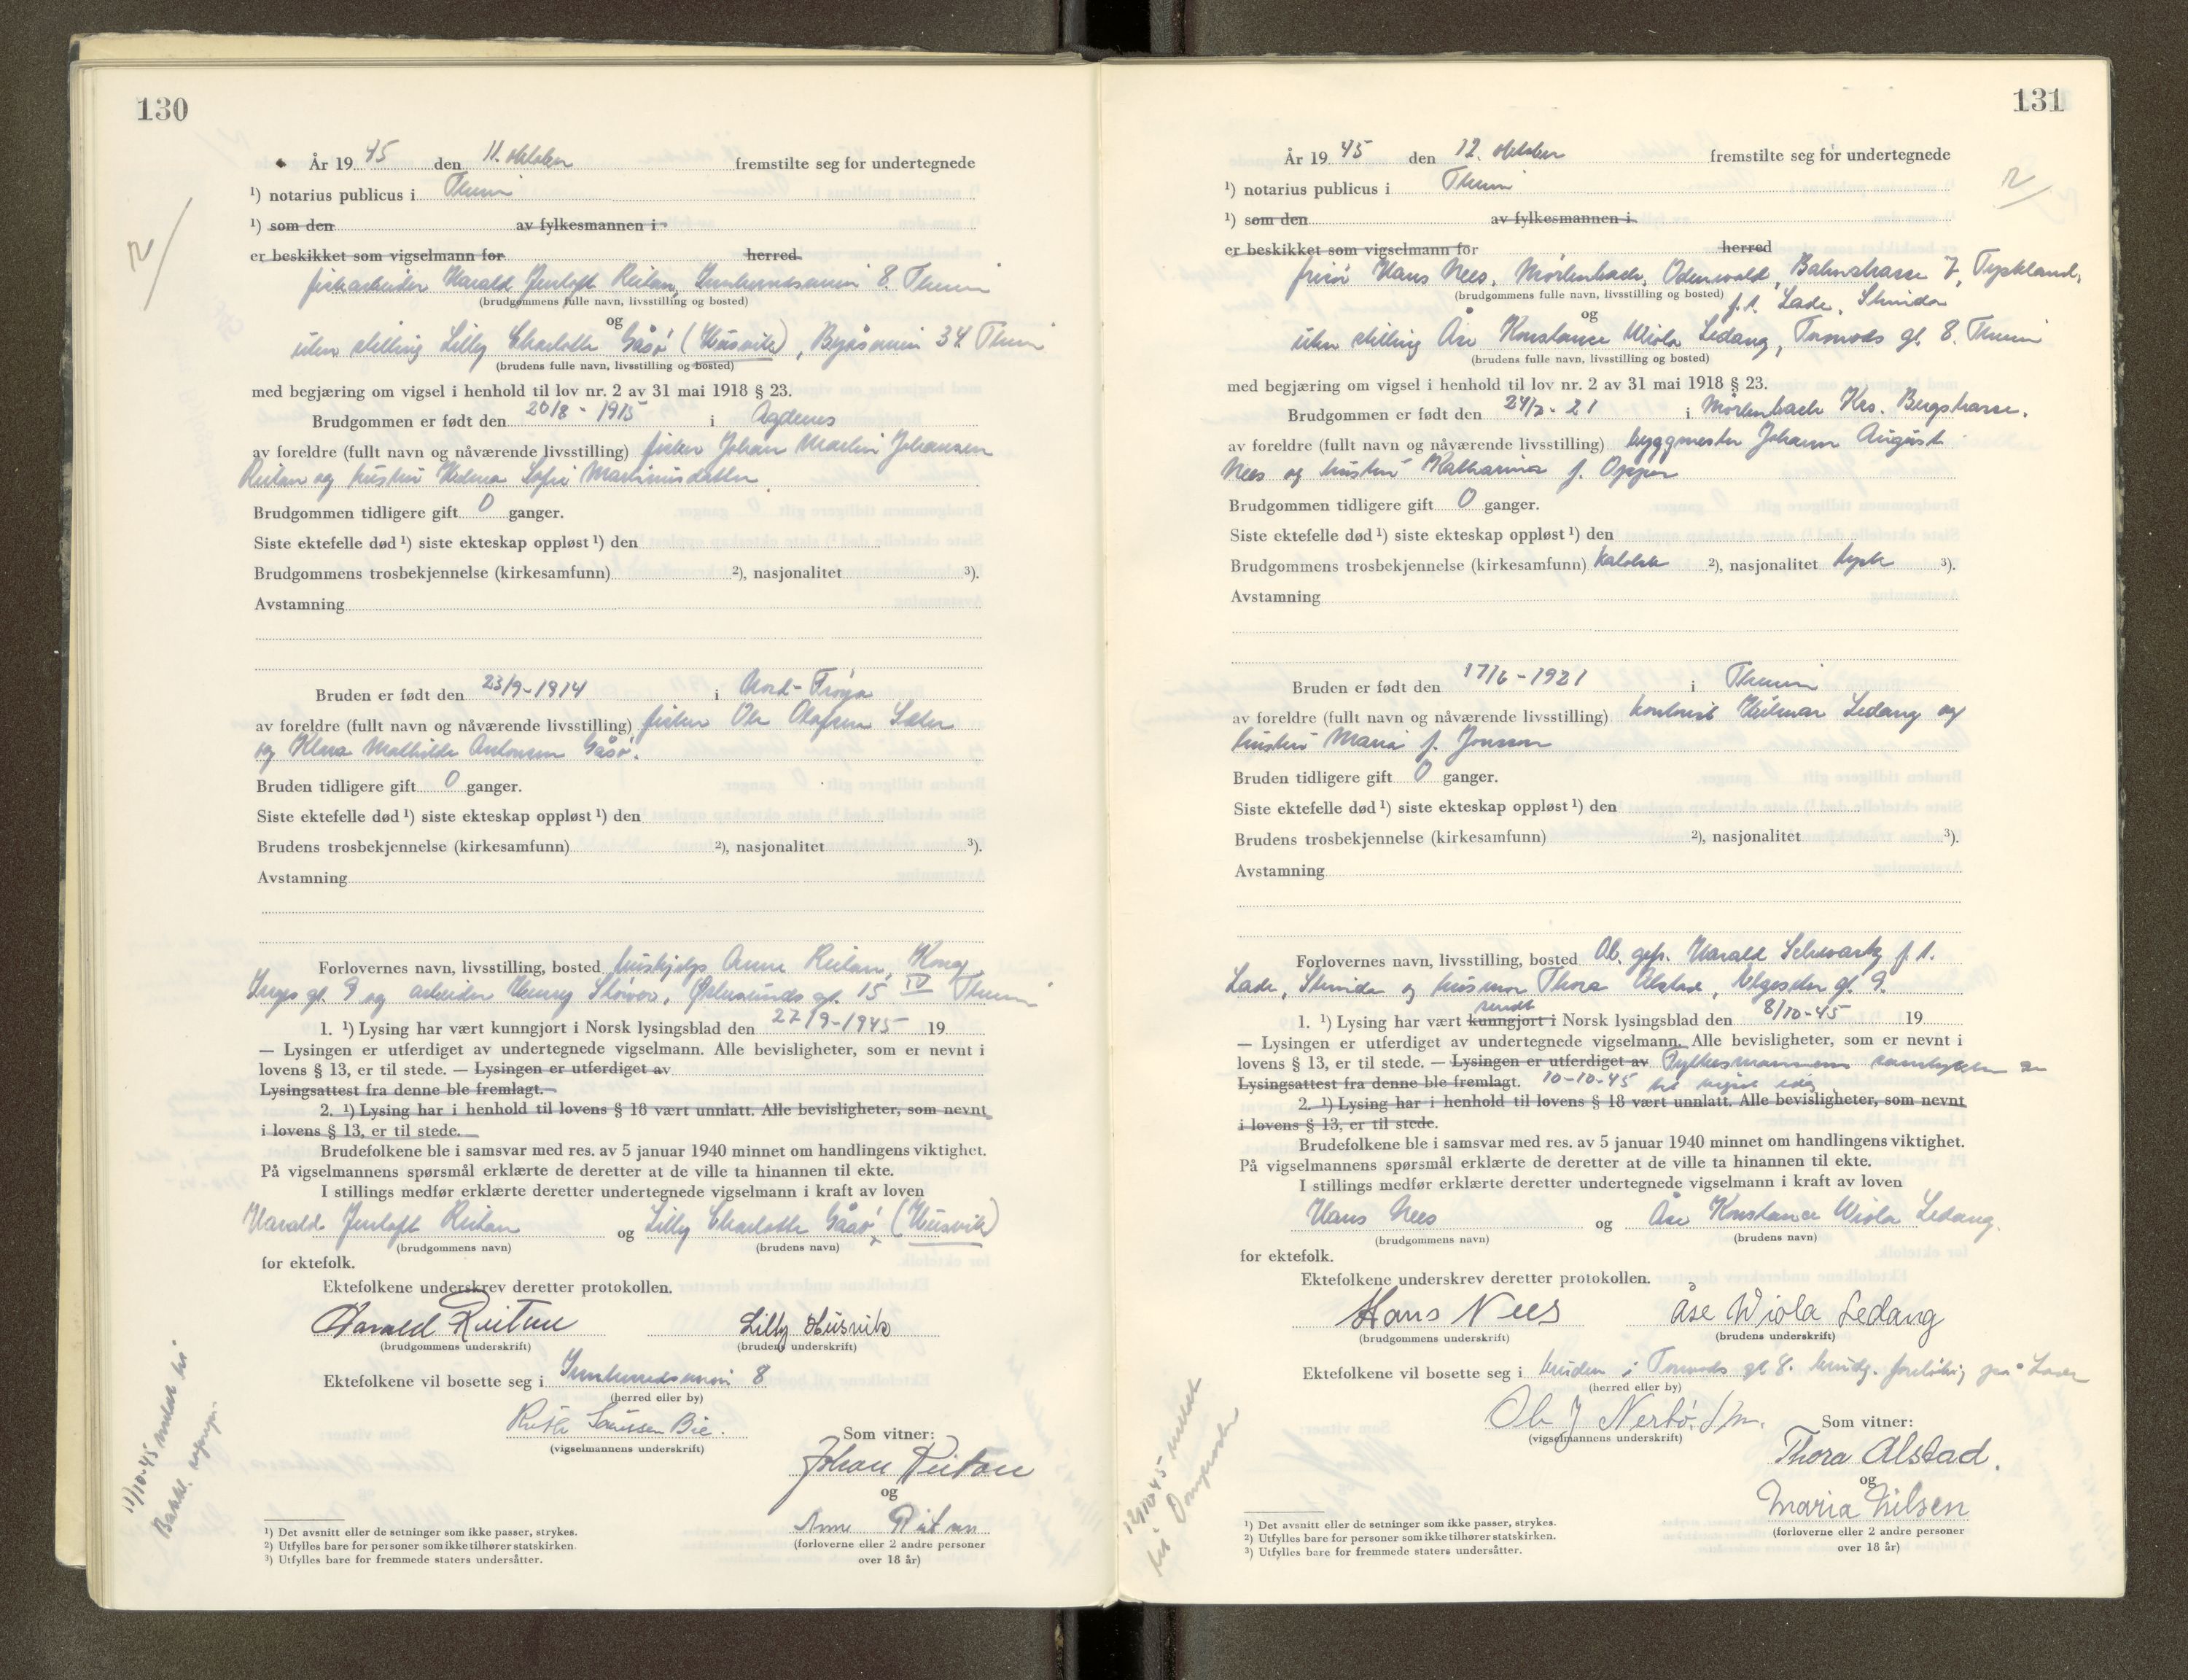 130
År 19 45 den 11. oktober fremstilte seg for undertegnede
¹) notarius publicus i Theim
¹) som den av fylkesmannen i
er beskikket som vigselmann for herred
fiskarbeider Harald Jentoft Reitan, 8. Theim
(brudgommens fulle navn, livsstilling og bosted)
og
uten stilling Lilly Charlotte Gåsø (Husvik), Byåsveien 34 Theim
(brudens fulle navn, livsstilling og bosted)
med begjæring om vigsel i henhold til lov nr. 2 av 31 mai 1918 § 23.
Brudgommen er født den 20/8 - 1915 i Agdenes
av foreldre (fullt navn og nåværende livsstilling) fisker Johan Martin Johansen
Reitan og hustru Helma Sofie Martinusdatter
Brudgommen tidligere gift 0 ganger.
Siste ektefelle død ¹) siste ekteskap oppløst ¹) den
Brudgommens trosbekjennelse (kirkesamfunn) ²), nasjonalitet ³).
Avstamning
Bruden er født den 23/9-1914 i Nord-Frøya
av foreldre (fullt navn og nåværende livsstilling) fisker Ole Olafsen Sæter
og Klara Mathilde Antonsen Gåsø.
Bruden tidligere gift 0 ganger.
Siste ektefelle død ¹) siste ekteskap oppløst ¹) den
Brudens trosbekjennelse (kirkesamfunn) ²), nasjonalitet ³).
Avstamning
Forlovernes navn, livsstilling, bosted hushjelp Anne Reitan, Kong
Inges gt. 9 og arbeider Henry Støvor, Ørlusunds gt. 15 IV Theim
1. ¹) Lysing har vært kunngjort i Norsk lysingsblad den 27/9-1945 19
— Lysingen er utferdiget av undertegnede vigselmann. Alle bevisligheter, som er nevnt i
lovens § 13, er til stede. — Lysingen er utferdiget av
Lysingsattest fra denne ble fremlagt.
2. ¹) Lysing har i henhold til lovens § 18 vært unnlatt. Alle bevisligheter, som nevnt
i lovens § 13, er til stede.
Brudefolkene ble i samsvar med res. av 5 januar 1940 minnet om handlingens viktighet.
På vigselmannens spørsmål erklærte de deretter at de ville ta hinannen til ekte.
I stillings medfør erklærte deretter undertegnede vigselmann i kraft av loven
Harald Jentoft Reitan og Lilly Charlotte Gåsø (Husvik)
(brudgommens navn) (brudens navn)
for ektefolk.
Ektefolkene underskrev deretter protokollen.
Harald Reitan Lilly Husvik
(brudgommens underskrift) (brudens underskrift)
Ektefolkene vil bosette seg i 8
(herred eller by)
Ruth Bie.
(vigselmannens underskrift)
Som vitner:
Johan Reitan
og
Anne Reitan
(forloverne eller 2 andre personer
over 18 år)
11/10-45 meldt til
Bakke
¹) Det avsnitt eller de setninger som ikke passer, strykes.
²) Utfylles bare for personer som ikke tilhører statskirken.
³) Utfylles bare for fremmede staters undersåtter.
131
År 19 45 den 12. oktober fremstilte seg for undertegnede
¹) notarius publicus i Theim
¹) som den av fylkesmannen i
er beskikket som vigselmann for herred
frisør Hans Nees, Mörlenbach, Odenwald, Bahnstrasse 7, Tyskland,
(brudgommens fulle navn, livsstilling og bosted) f.t. Lade, Strinda
og
uten stilling Åse Konstance Wiola Ledang, Tormods gt. 8. Theim
(brudens fulle navn, livsstilling og bosted)
med begjæring om vigsel i henhold til lov nr. 2 av 31 mai 1918 § 23.
Brudgommen er født den 24/2 - 21 i Mörlenbach Krs. Bergstrasse.
av foreldre (fullt navn og nåværende livsstilling) byggmester Johann August
Nees og hustru Katharina f. Opper
Brudgommen tidligere gift 0 ganger.
Siste ektefelle død ¹) siste ekteskap oppløst ¹) den
Brudgommens trosbekjennelse (kirkesamfunn) katolsk ²), nasjonalitet tysk ³).
Avstamning
Bruden er født den 17/6 - 1921 i Theim
av foreldre (fullt navn og nåværende livsstilling) kontorist Hilmar Ledang og
hustru Maria f. Jonsson
Bruden tidligere gift 0 ganger.
Siste ektefelle død ¹) siste ekteskap oppløst ¹) den
Brudens trosbekjennelse (kirkesamfunn) ²), nasjonalitet ³).
Avstamning
Forlovernes navn, livsstilling, bosted Ob. gefr. Harald Schwartz f.t.
Lade, Strinda og husmor Thora Alstad, gt. 9.
sendt
1. ¹) Lysing har vært kunngjort i Norsk lysingsblad den 8/10-45 19
— Lysingen er utferdiget av undertegnede vigselmann. Alle bevisligheter, som er nevnt i
lovens § 13, er til stede. — Lysingen er utferdiget av Fylkesmannens samtykke av
Lysingsattest fra denne ble fremlagt. 10-10-45 til
2. ¹) Lysing har i henhold til lovens § 18 vært unnlatt. Alle bevisligheter, som nevnt
i lovens § 13, er til stede.
Brudefolkene ble i samsvar med res. av 5 januar 1940 minnet om handlingens viktighet.
På vigselmannens spørsmål erklærte de deretter at de ville ta hinannen til ekte.
I stillings medfør erklærte deretter undertegnede vigselmann i kraft av loven
Hans Nees og Åse Konstance Wiola Ledang.
(brudgommens navn) (brudens navn)
for ektefolk.
Ektefolkene underskrev deretter protokollen.
Hans Nees Åse Wiola Ledang
(brudgommens underskrift) (brudens underskrift)
Ektefolkene vil bosette seg i bruden i Tormods gt 8. brudg. foreløbig på Lade
(herred eller by)
Ob J Nerbø. f/m.
(vigselmannens underskrift)
Som vitner:
Thora Alstad.
og
Maria Nilsen
(forloverne eller 2 andre personer
over 18 år)
12/10-45 meldt
til Domprosten
¹) Det avsnitt eller de setninger som ikke passer, strykes.
²) Utfylles bare for personer som ikke tilhører statskirken.
³) Utfylles bare for fremmede staters undersåtter.